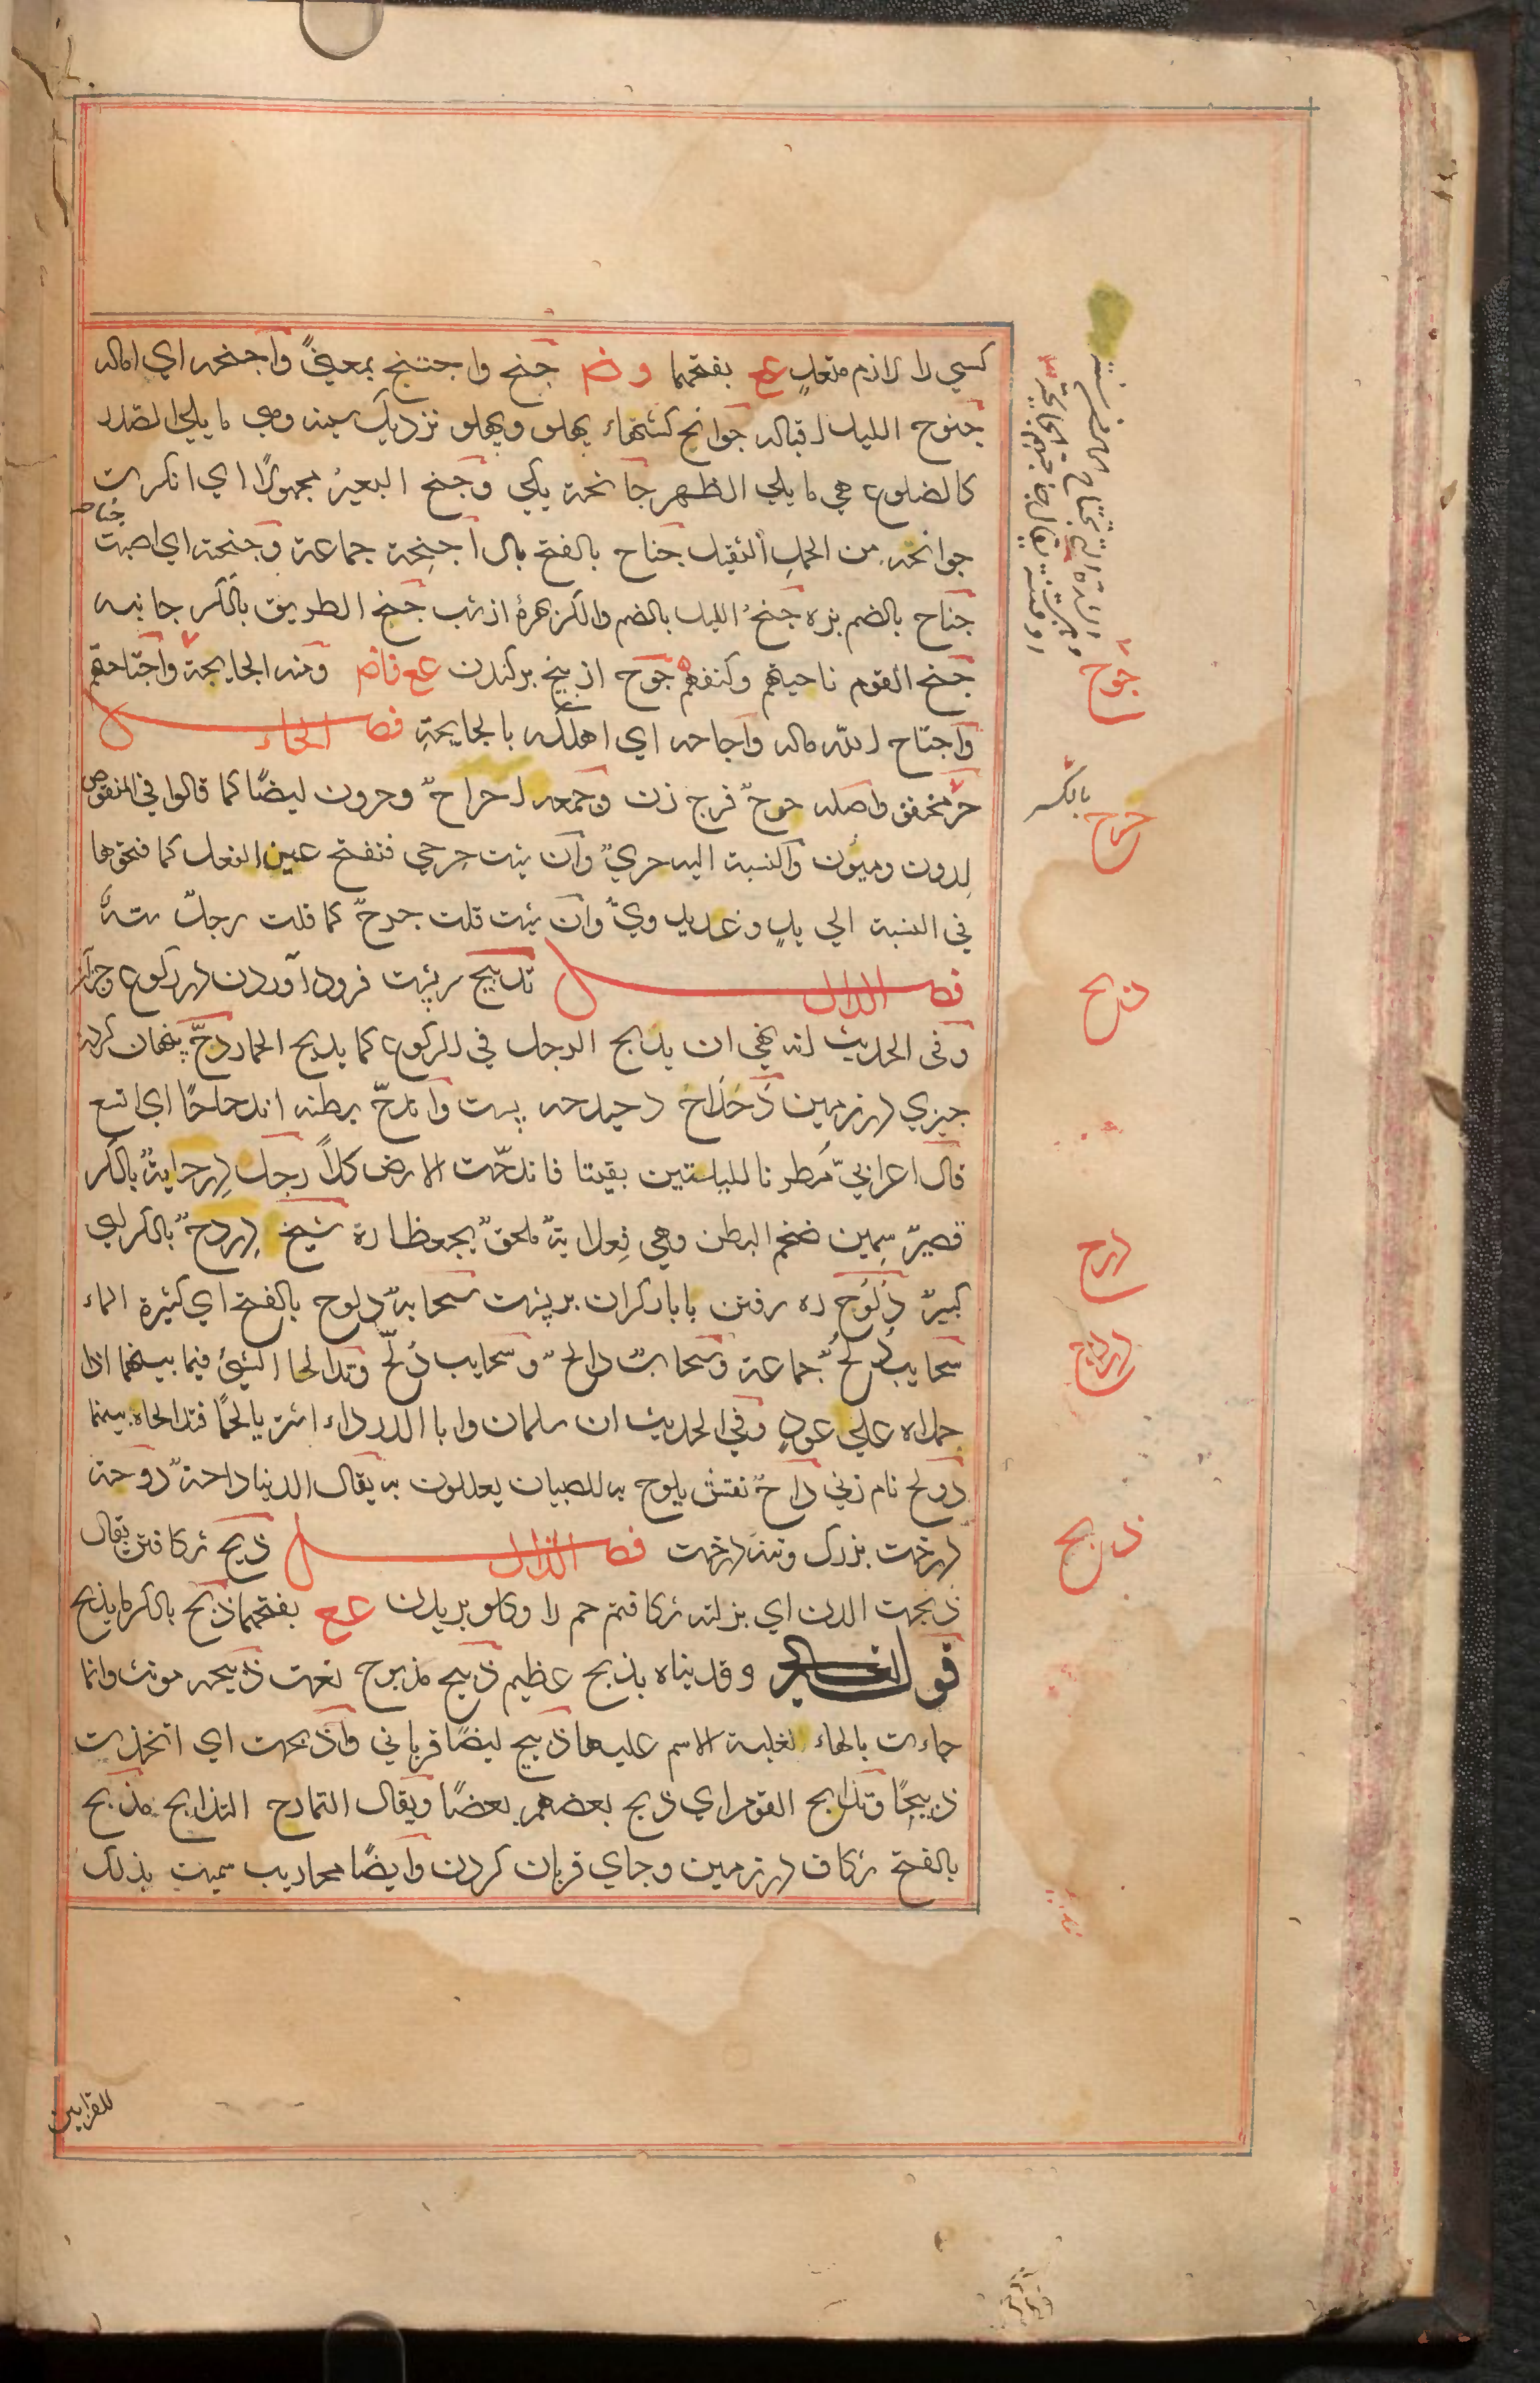 كسي را لازم متعدٍ عع بفتحهما وض جنح واجتنح بمعنىً واجنحه اي اماله
جنوح الليل اقباله جوانح استخوانهاء پهلو نزديك سينه وهي ما يلي الصدر
كالضلوع هي ما يلي الظهر جانحة يكي وجنح البعير مجهولاً اي انكسرت
جوانحه من الحمل الثقيل جناح بالفتح بال اجنحة جماعة وجنحته اي اصبت جناحه
جناح بالضم بزه جنحُ الليل بالضم والكسر بهرهٔ از شب جنح الطريق بالكسر جانبه
جنح القوم ناحيتهم وكنفهم جوح از بيخ بركندن عع فاض ومنه الجايحة واجتاحتهم
واجتاح الله ماله واجاحه اي اهلكه بالجايحة فصل الحاء
حر مخفف واصله حرحٌ فرج زن وجمعه احراحٌ وحرون ايضًا كما قالوا في المنقوص
لدون وميؤن والنسبة اليه حريٌ وان شئت حرحي فتفتح عين الفعل كما فتحوها
في النسبة الي يدٍ وغدٍ يدويٌ وان شئت قلت حرحٌ كما قلت رجلٌ ستهٌ
فصل الدال تدبيح سر پشت فرود آوردن در ركوع وجز آن
وفي الحديث انه نهي ان يدبح الرجل في الركوع كما يدبح الحمار دحّ پنهان كردن
چيزي در زمين دحداح دحيدحه پست واندحّ بطنه اندحاحًا اي اتسع
قال اعرابيّ مُطرنا لليلتين بقيتا فاندحّت الارض كلاً رجل درحايةٌ بالكسر
قصيرٌ سمين ضخم البطن وهي فعلايةٌ ملحقٌ بجعظارة شيخ دردحٌ بالكسر اي
كبيرٌ دلوح ره رفتن با بار كران بر پشت سحابةٌ دلوح بالفتح اي كثيرة الماء
سحايب دُلُحٌ جماعة وسحابٌ دالحٌ وسحايب دُلّحٌ وتدالحا الشيئ فيما بينهما اذا
حملاه علي عودٍ وفي الحديث ان سلمان وابا الدرداء اشتريا لحمًا فتدالحاه بينهما
دولح نام زني داحٌ نقش يلوح به للصبيان يعللون به يقال الدنيا داحةٌ دوحة
درخت بزرك وتنه درخت فصل الذال ذبح شكافتن يقال
ذبحت الدن اي بزلته شكافتم خم را وكلو بريدن عع بفتحهما ذبح بالكسر ما يذبح
قوله تعالى وفديناه بذبح عظيم ذبيح مذبوح نعت ذبيحه مونث وانما
جاءت بالهاء لغلبة الاسم عليها ذبيح ايضًا قرباني واذبحت اي اتخذت
ذبيحًا وتذابح القوم اي ذبح بعضهم بعضًا ويقال التمادح التذابح مذبح
بالفتح شكاف در زمين وجاي قربان كردن وايضًا محاريب سميت بذلك
للقرابين
جوح
حرح
بالكسر
دبح
درح
دلح
ذبح